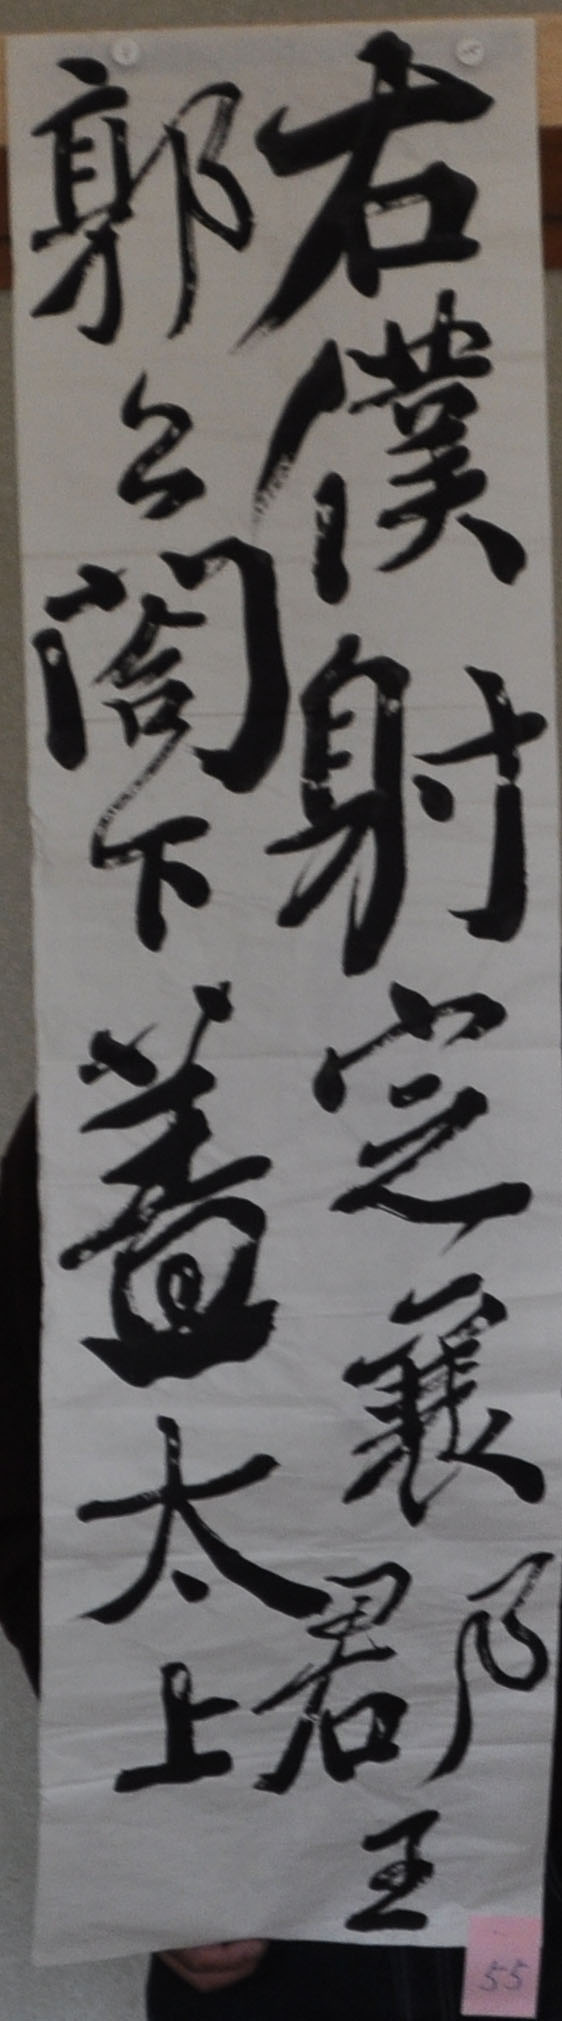 右僕射定襄郡王
郭公閤下蓋太上
55